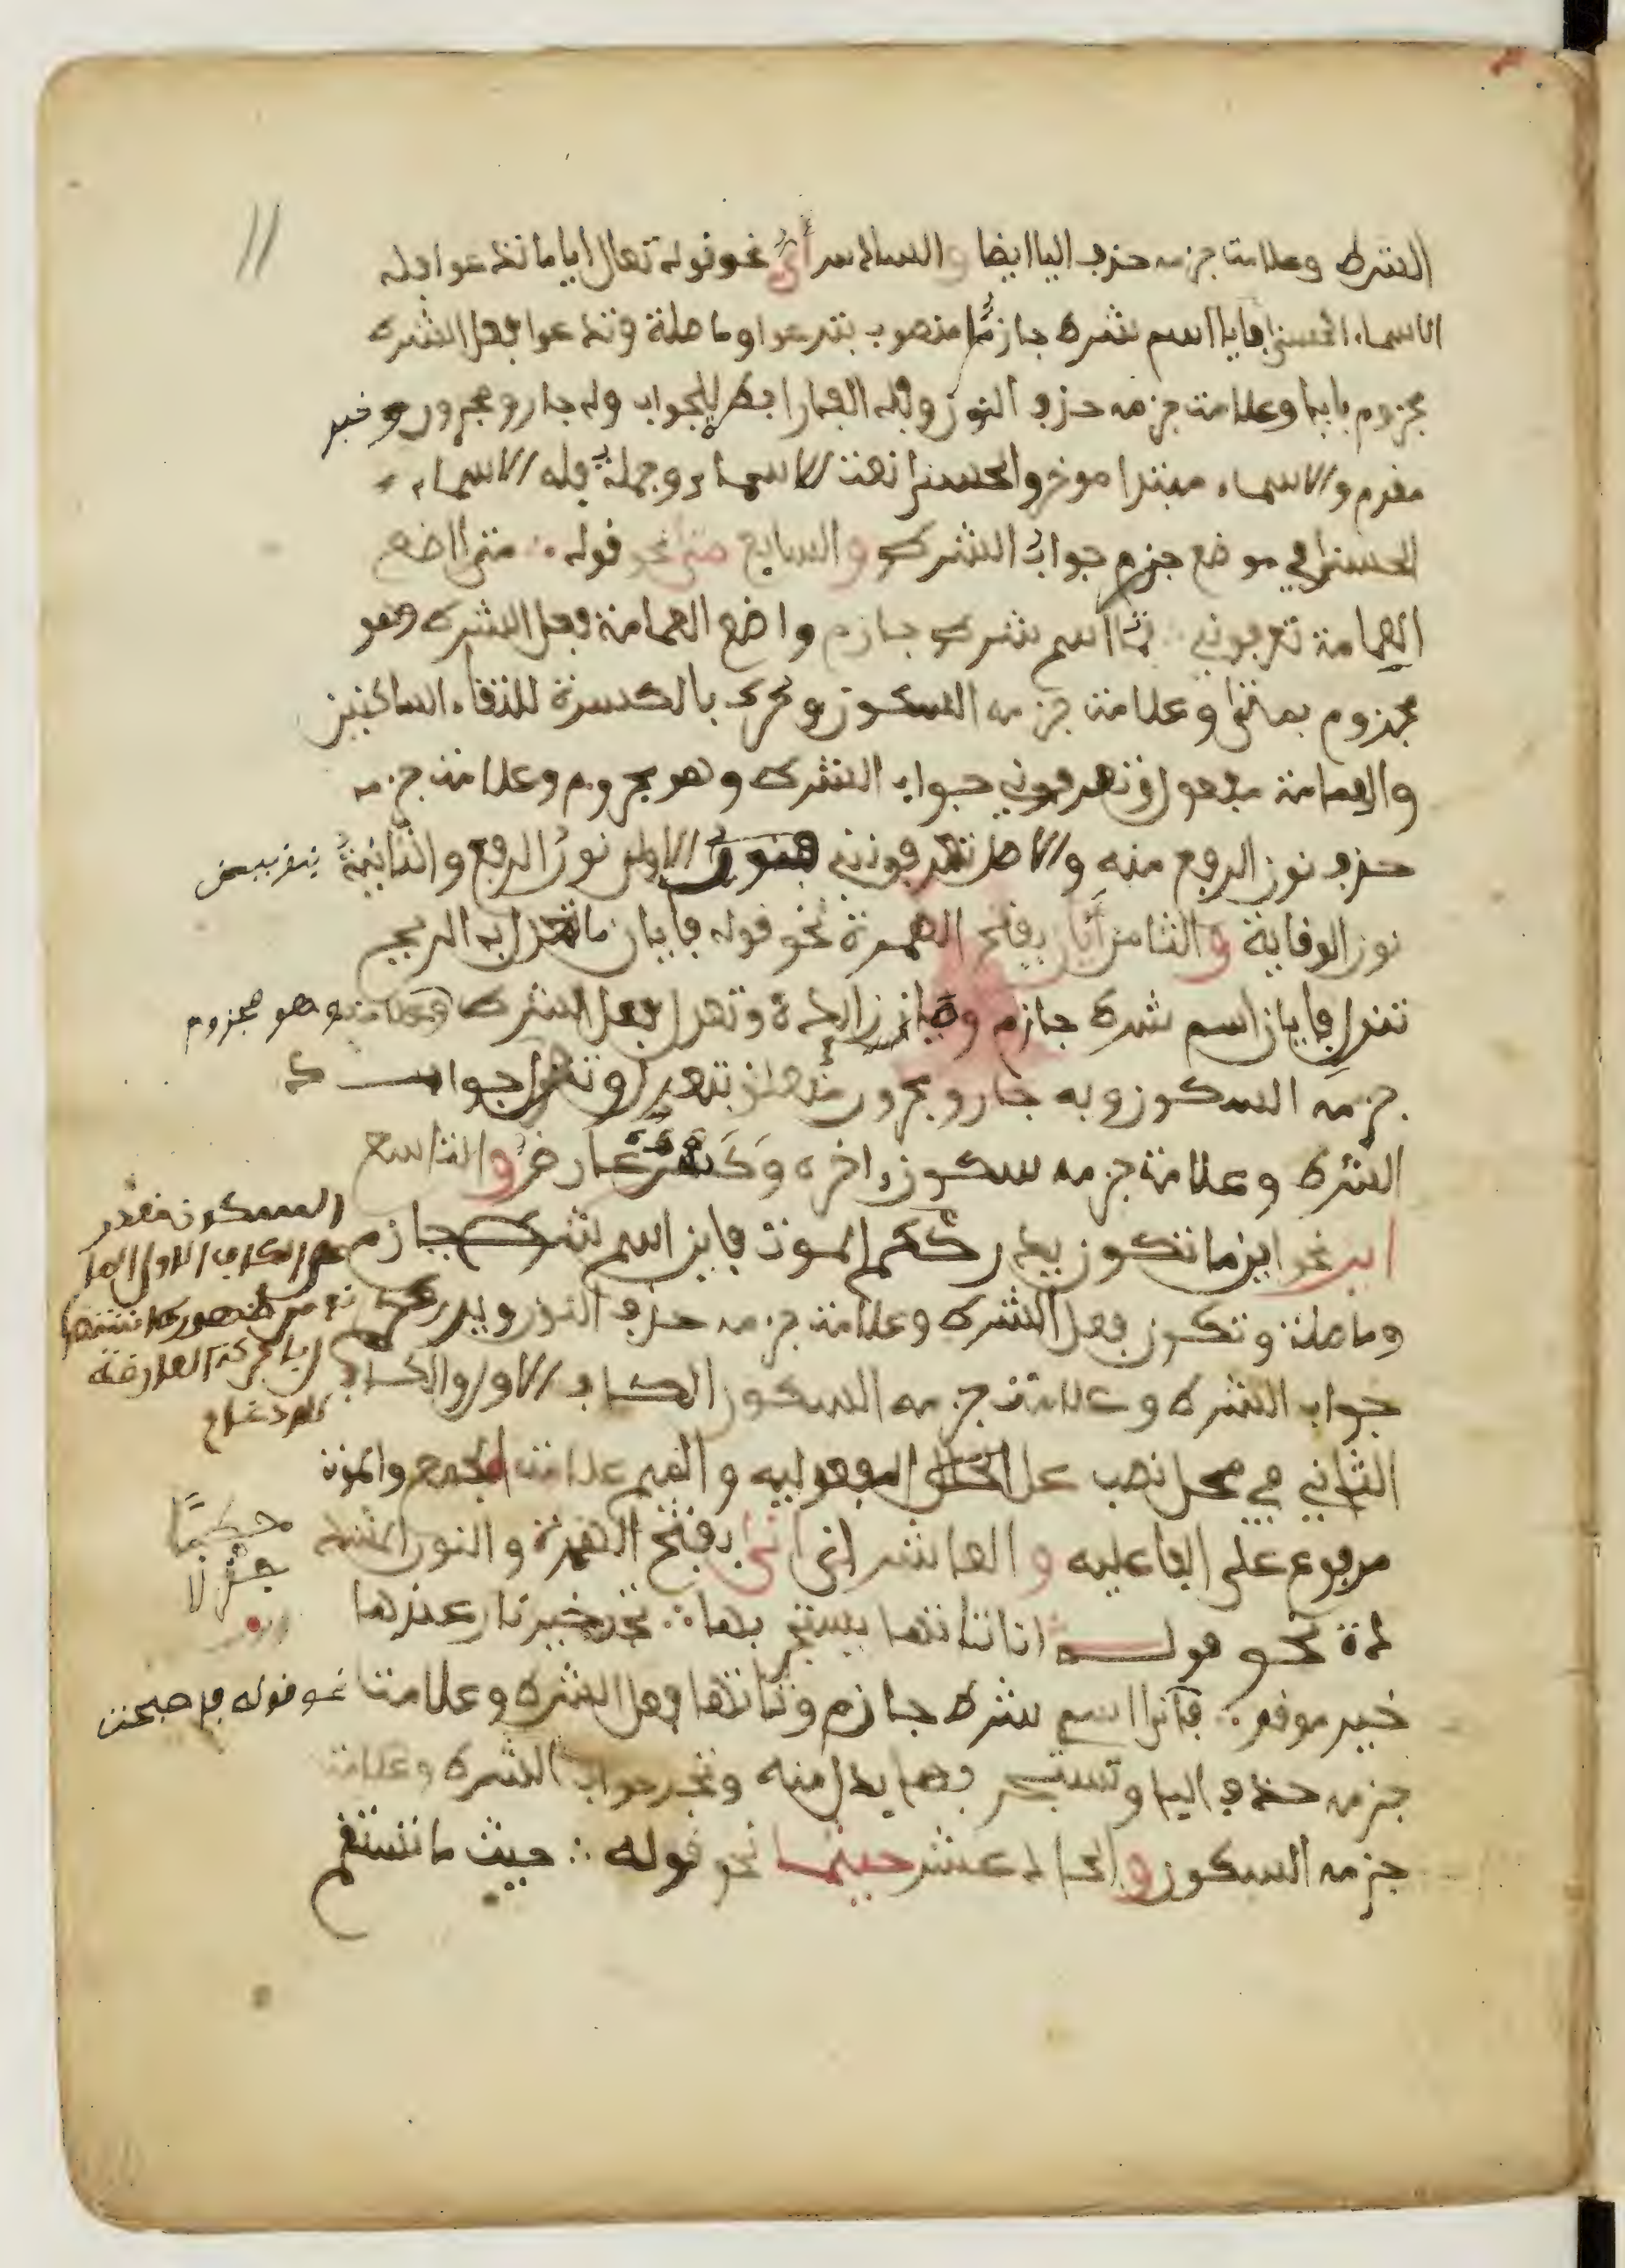 الشرط وعلامة جزمه حذف اليا ايضا والسادس أيّ نحو قوله تعالى اياما تدعوا فله
الاسماء الحسنى فايا اسم شرط جازم منصوب بتدعوا وما صلة وتدعوا فعل الشرط
مجزوم بايا وعلامة جزمه حذف النون وفله الفا رابط للجواب وله جار ومجرور وخبر
مقدم والاسماء مبتدا موخر والحسنى نعت الاسماء وجملة فله الاسماء
الحسنى في موضع جزم جواب الشرط والسابع متى نحو قوله ∴ متى اضع
العمامة تعرفوني ∴ اسم شرط جازم واضع العمامة فعل الشرط وهو
مجزوم بمتى وعلامة جزمه السكون وحرك بالكسرة للتقاء الساكنين
والعمامة مفعول وتعرفوني جواب الشرط وهو مجزوم وعلامة جزمه
حذف نون الرفع منه والاصل تعرفونني فنون الاولى نون الرفع والثانية
نون الوقاية والثامن أيان بفتح الهمزة نحو قوله فايان ما تعدل به الريح
تنزل فايان اسم شرط جازم وما زائدة وتعدل فعل الشرط وهو مجزوم
جزمه السكون وبه جار ومجرور متعلق بتعدل وتنزل جواب
الشرط وعلامة جزمه سكون اخره وكسره عارض والتاسع
اين نحو اينما تكون يدرككم الموت فاين اسم شرط جازم
وما صلة وتكون فعل الشرط وعلامة جزمه حذف النون ويدرككم
جواب الشرط وعلامة جزمه السكون الكاف الاول والكاف
الثاني في محل نصب على المفعوليه والميم علامة الجمع والموت
مرفوع على الفاعليه والعاشر انى بفتح الهمزة والنون المشد
دة نحو قولـــه انا تاتها تستجر بها ∴ تجد خير نار عندها
خير موقد ∴ فانا اسم شرط جازم وتاتها فعل الشرط وعلامة نحو قوله فاصبحت
جزمه حذف اليا وتستجر بها بدل منه وتجد جواب الشرط وعلامة
جزمه السكون والحادي عشر حيثما نحو قوله ∴ حيث ما تستقم
السكون مقدر
على الكاف الاول
من ظهوره اشتغا
بالحركة العارضة
للادغام
حطبًا
جزلا